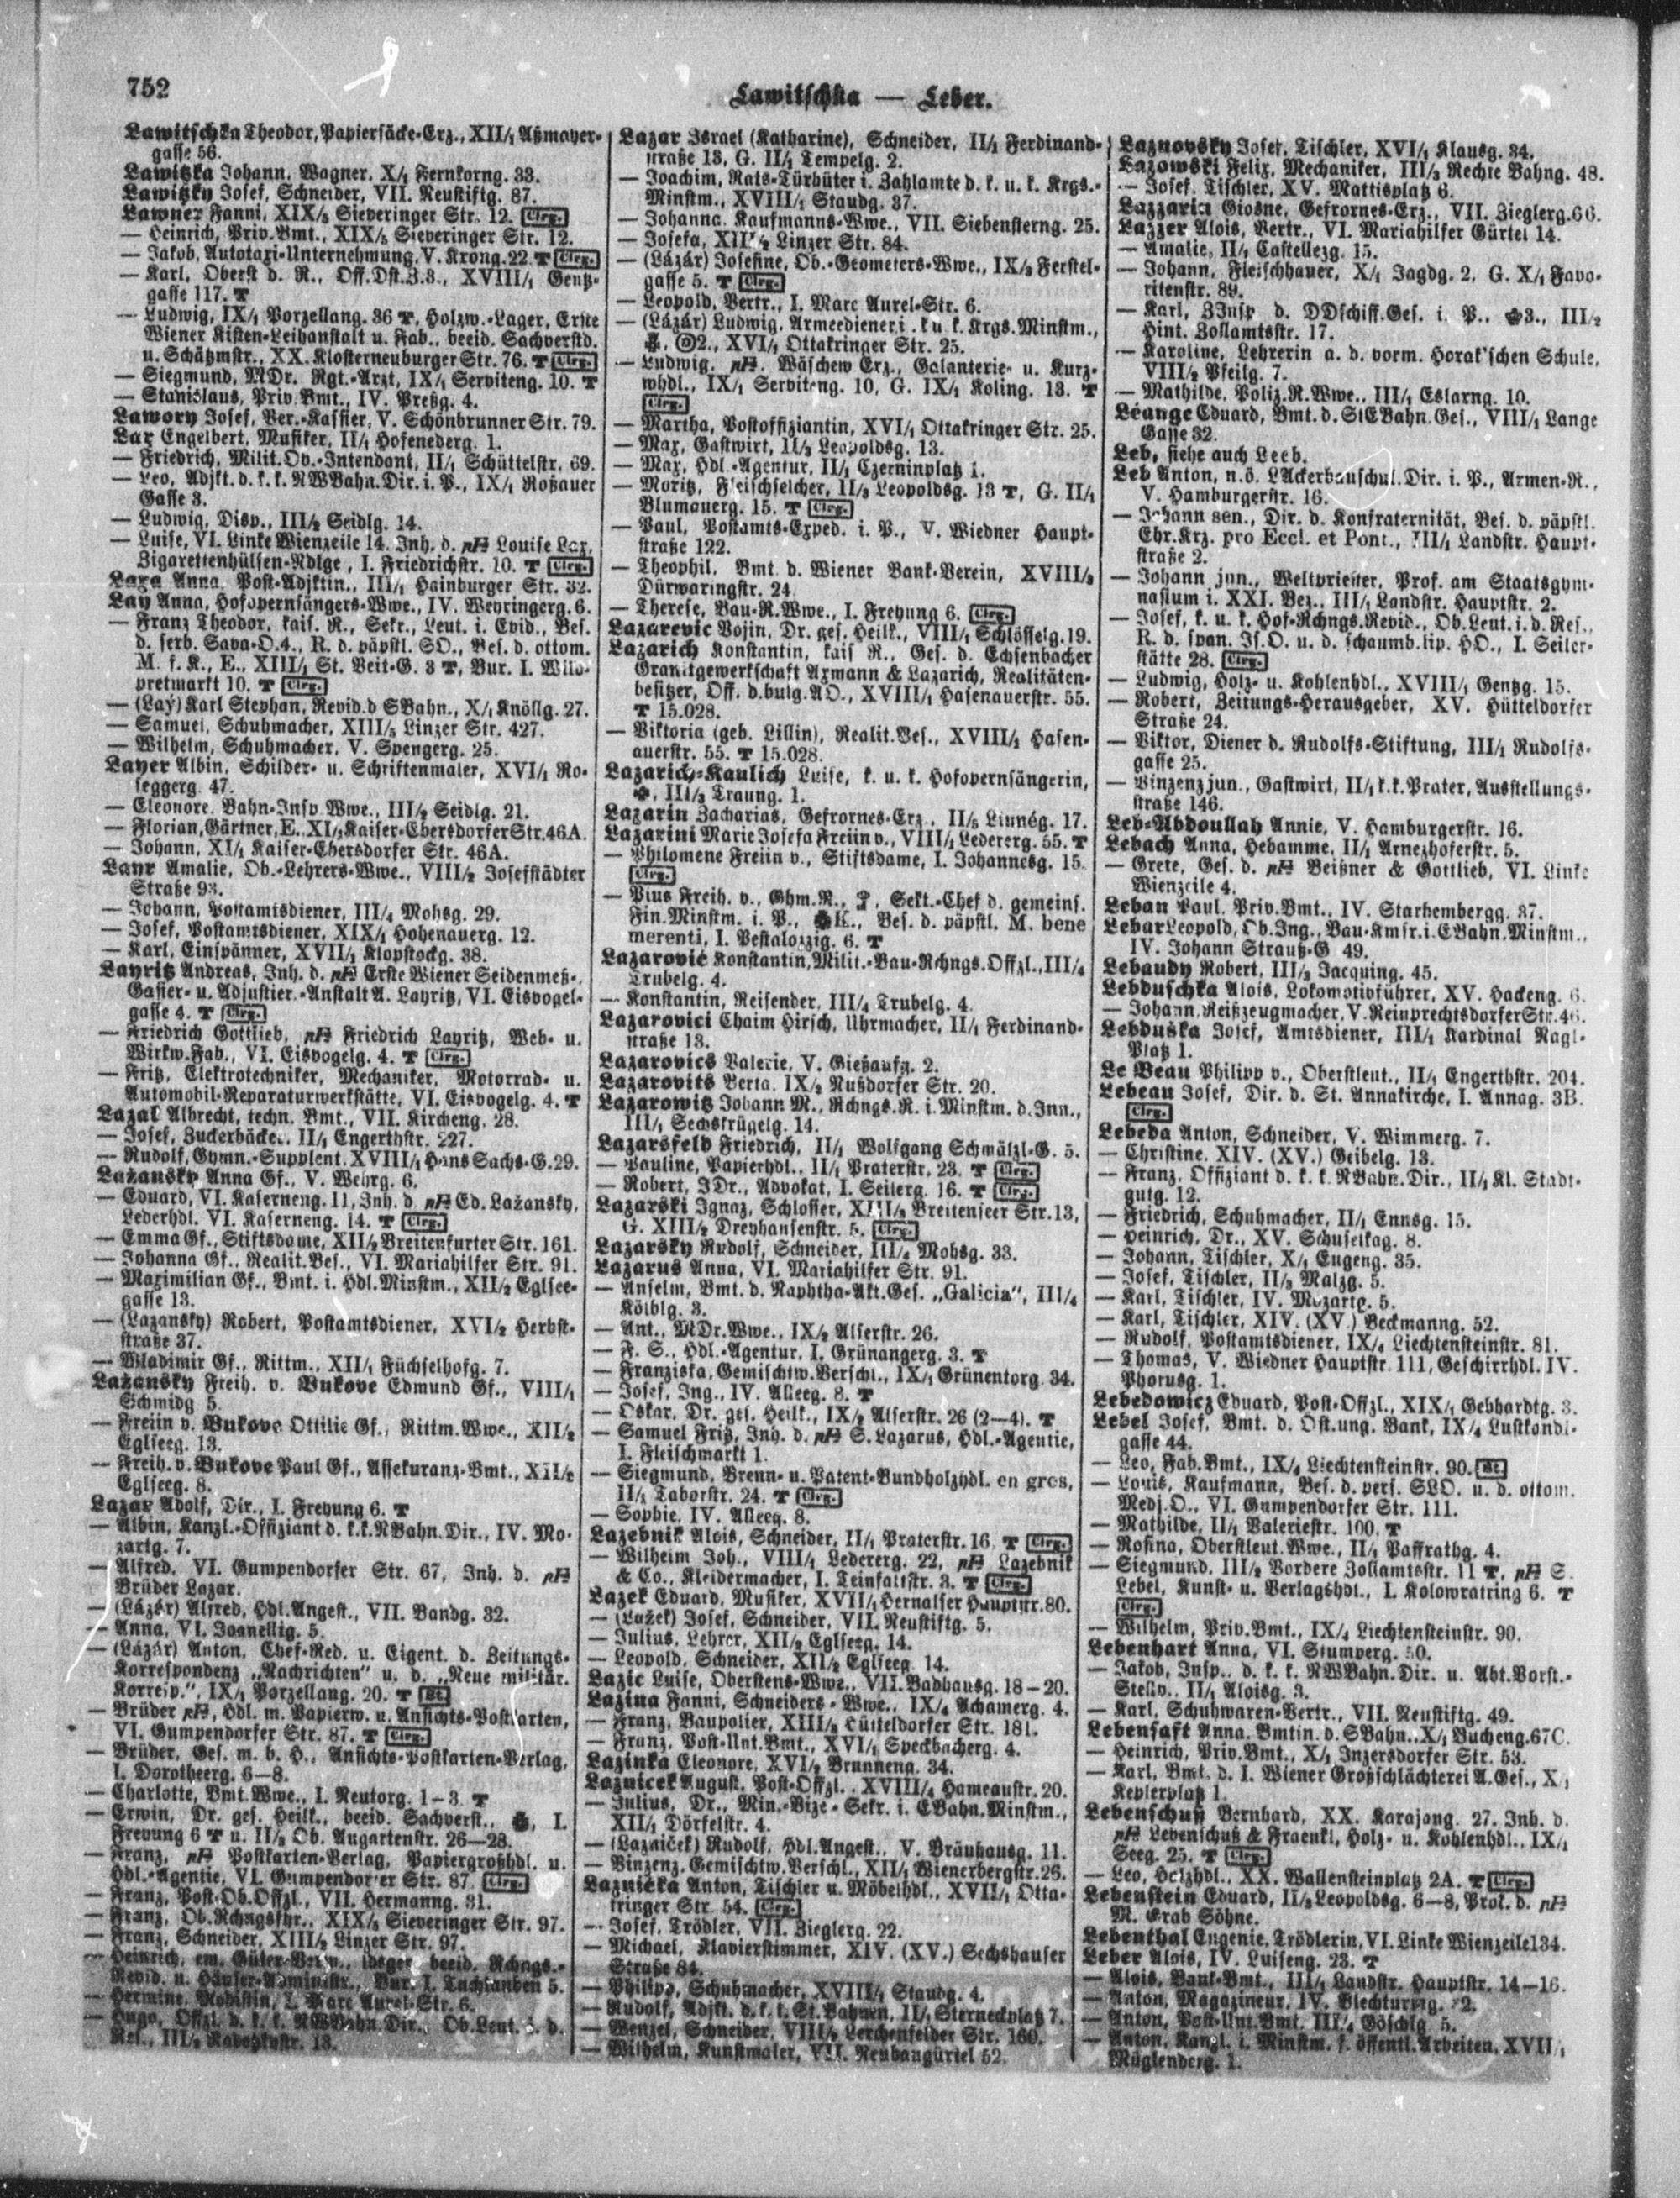 752
Lawitschka — Leber.
Lawitschka Theodor, Papiersäcke-Erz., XII/1 Aßmayer-
gasse 56.
Lawitzka Johann, Wagner, X/1 Fernkorng. 33.
Lawitzky Josef, Schneider, VII. Neustiftg. 87.
Lawner Fanni, XIX/5 Sieveringer Str. 12. Clrg.
— Heinrich, Priv.Bmt., XIX/5 Sieveringer Str. 12.
— Jakob, Autotaxi-Unternehmung, V. Krong. 22. T Clrg.
— Karl, Oberst d. R., Off.Dst.Z.3., XVIII/1 Gentz-
gasse 117. T
— Ludwig, IX/1 Porzellang. 36 T, Holzw.-Lager, Erste
Wiener Kisten-Leihanstalt u. Fab., beeid. Sachverstd.
u. Schätzmstr., XX. Klosterneuburger Str. 76. T Clrg.
— Siegmund, MDr. Rgt.-Arzt, IX/1 Serviteng. 10. T
— Stanislaus, Priv.Bmt., IV. Preßg. 4.
Lawory Josef, Ver.-Kassier, V. Schönbrunner Str. 79.
Lax Engelbert, Musiker, II/1 Hofenederg. 1.
— Friedrich, Milit.Ob.-Intendant, II/1 Schüttelstr. 69.
— Leo, Adjkt. d. k. k. NWBahn.Dir. i. P., IX/1 Roßauer
Gasse 3.
— Ludwig, Disp., III/2 Seidlg. 14.
— Luise, VI. Linke Wienzeile 14, Inh. d. pH Louise Lax,
Zigarettenhülsen-Ndlge, I. Friedrichstr. 10. T Clrg.
Laxa Anna, Post-Adjktin., III/1 Hainburger Str. 32.
Lay Anna, Hofopernsängers-Wwe., IV. Weyringerg. 6.
— Franz Theodor, kais. R., Sekr., Leut. i. Evid., Bes.
d. serb. Sava-O.4., R. d. päpstl. SO., Bes. d. ottom.
M. f. K., E., XIII/1 St. Veit-G. 3 T, Bur. I. Wild-
pretmarkt 10. T Clrg.
— (Laÿ) Karl Stephan, Revid. d SBahn., X/1 Knöllg. 27.
— Samuel, Schuhmacher, XIII/5 Linzer Str. 427.
— Wilhelm, Schuhmacher, V. Spengerg. 25.
Layer Albin, Schilder- u. Schriftenmaler, XVI/1 Ro-
seggerg. 47.
— Eleonore, Bahn-Insp.Wwe., III/2 Seidlg. 21.
— Florian, Gärtner, E., XI/1 Kaiser-Ebersdorfer Str. 46A.
— Johann, XI/1 Kaiser-Ebersdorfer Str. 46A.
Layr Amalie, Ob.-Lehrers-Wwe., VIII/2 Josefstädter
Straße 93.
— Johann, Postamtsdiener, III/4 Mohsg. 29.
— Josef, Postamtsdiener, XIX/1 Hohenauerg. 12.
— Karl, Einspänner, XVII/1 Klopstockg. 38.
Layritz Andreas, Inh. d. pH Erste Wiener Seidenmeß-,
Gasier- u. Adjustier.-Anstalt A. Layritz, VI. Eisvogel-
gasse 4. T Clrg.
— Friedrich Gottlieb, pH Friedrich Layritz, Web- u.
Wirkw.Fab., VI. Eisvogelg. 4. T Clrg.
— Fritz, Elektrotechniker, Mechaniker, Motorrad- u.
Automobil-Reparaturwerkstätte, VI. Eisvogelg. 4. T
Lazal Albrecht, techn. Bmt., VII. Kircheng. 28.
— Josef, Zuckerbäcker, II/1 Engerthstr. 227.
— Rudolf, Gymn.-Supplent, XVIII/1 Hans Sachs-G. 29.
Lažansky Anna Gf., V. Wehrg. 6.
— Eduard, VI. Kaserneng. 11, Inh. d. pH Ed. Lažansky,
Lederhdl. VI. Kaserneng. 14. T Clrg.
— Emma Gf., Stiftsdame, XII/2 Breitenfurter Str. 161.
— Johanna Gf., Realit.Bes., VI. Mariahilfer Str. 91.
— Maximilian Gf., Bmt. i. Hdl.Minstm., XII/2 Eglsee-
gasse 13.
— (Lazansky) Robert, Postamtsdiener, XVI/2 Herbst-
straße 37.
— Wladimir Gf., Rittm., XII/1 Füchselhofg. 7.
Lažansky Freih. v. Bukove Edmund Gf., VIII/1
Schmidg 5.
— Freiin v. Bukove Ottilie Gf., Rittm.Wwe., XII/2
Eglseeg. 13.
— Freih. v. Bukove Paul Gf., Assekuranz-Bmt., XII/2
Eglseeg. 8.
Lazar Adolf, Dir., I. Freyung 6. T
— Albin, Kanzl.-Offiziant d. k.k. NBahn.Dir., IV. Mo-
zartg. 7.
— Alfred, VI. Gumpendorfer Str. 67, Inh. d. pH
Brüder Lazar.
— (Lázár) Alfred, Hdl.Angest., VII. Bandg. 32.
— Anna, VI. Joanellig. 5.
— (Lázár) Anton, Chef-Red. u. Eigent. d. Zeitungs-
Korrespondenz „Nachrichten“ u. d. „Neue militär.
Korresp.“, IX/1 Porzellang. 20. T Bt.
— Brüder pH, Hdl. m. Papierw. u. Ansichts-Postkarten,
VI. Gumpendorfer Str. 87. T Clrg.
— Brüder, Ges. m. b. H., Ansichts-Postkarten-Verlag,
I. Dorotheerg. 6—8.
— Charlotte, Bmt.Wwe., I. Neutorg. 1—3. T
— Erwin, Dr. ges. Heilk., beeid. Sachverst., I.
Freyung 6 T u. II/2 Ob. Augartenstr. 26—28.
— Franz, pH Postkarten-Verlag, Papiergroßhdl. u.
Hdl.-Agentie, VI. Gumpendorfer Str. 87. Clrg.
— Franz, Post-Ob.Offzl., VII. Hermanng. 31.
— Franz, Ob.Rchngsfhr., XIX/5 Sieveringer Str. 97.
— Franz, Schneider, XIII/2 Linzer Str. 97.
— Heinrich, em. Güter- beeid. Rchngs.-
Revid. u. Häuser-Administr., Bur. I. Tuchlauben 5.
— Hermine, Modistin, I. Marc Aurel-Str. 6.
— Hugo, Offzl. d. k. k. NWBahn.Dir., Ob.Leut. i. d.
Res., III/2 Radetzkystr. 13.
Lazar Israel (Katharine), Schneider, II/1 Ferdinand-
straße 13, G. II/1 Tempelg. 2.
— Joachim, Rats-Türhüter i. Zahlamte d. k. u. k. Krgs.-
Minstm., XVIII/1 Staudg. 37.
— Johanna, Kaufmanns-Wwe., VII. Siebensterng. 25.
— Josefa, XIII/2 Linzer Str. 84.
— (Lázár) Josefine, Ob.-Geometers-Wwe., IX/3 Ferstel-
gasse 5. T Clrg.
— Leopold, Vertr., I. Marc Aurel-Str. 6.
— (Lázár) Ludwig, Armeediener i. k u. k. Krgs.Minstm.,
2., XVI/1 Ottakringer Str. 25.
— Ludwig, pH. Wäschew Erz., Galanterie- u. Kurz-
whdl., IX/1 Serviteng. 10, G. IX/1 Koling. 13. T
Clrg.
— Martha, Postoffiziantin, XVI/1 Ottakringer Str. 25.
— Max, Gastwirt, II/3 Leopoldsg. 13.
— Max, Hdl.-Agentur, II/1 Czerninplatz 1.
— Moritz, Fleischselcher, II/3 Leopoldsg. 13 T, G. II/1
Blumauerg. 15. T Clrg.
— Paul, Postamts-Exped. i. P., V. Wiedner Haupt-
straße 122.
— Theophil, Bmt. d. Wiener Bank-Verein, XVIII/3
Dürwaringstr. 24.
— Therese, Bau-R.Wwe., I. Freyung 6. Clrg.
Lazarevic Vojin, Dr. ges. Heilk., VIII/1 Schlösselg. 19.
Lazarich Konstantin, kais R., Ges. d. Echsenbacher
Granitgewerkschaft Axmann & Lazarich, Realitäten-
besitzer, Off. d.bulg.AO., XVIII/1 Hasenauerstr. 55.
T 15.028.
— Viktoria (geb. Lillin), Realit.Bes., XVIII/1 Hasen-
auerstr. 55. T 15.028.
Lazarich-Kaulich Luise, k. u. k. Hofopernsängerin,
III/3 Traung. 1.
Lazarin Zacharias, Gefrornes-Erz., II/5 Linnég. 17.
Lazarini Marie Josefa Freiin v., VIII/1 Ledererg. 55. T
— Philomene Freiin v., Stiftsdame, I. Johannesg. 15.
Clrg.
— Pius Freih. v., Ghm.R., Sekt.-Chef d. gemeins.
Fin.Minstm. i. P., K., Bes. d. päpstl. M. bene
merenti, I. Pestalozzig. 6. T
Lazarović Konstantin, Milit.-Bau-Rchngs.Offzl., III/4
Trubelg. 4.
— Konstantin, Reisender, III/4 Trubelg. 4.
Lazarovici Chaim Hirsch, Uhrmacher, II/1 Ferdinand-
straße 13.
Lazarovics Valerie, V. Gießaufg. 2.
Lazarovits Berta, IX/2 Nußdorfer Str. 20.
Lazarowitz Johann M., Rchngs.R. i. Minstm. d. Inn.,
III/1 Sechskrügelg. 14.
Lazarsfeld Friedrich, II/1 Wolfgang Schmälzl-G. 5.
— Pauline, Papierhdl., II/1 Praterstr. 23. T Clrg.
— Robert, JDr., Advokat, I. Seilerg. 16. T Clrg.
Lazarski Ignaz, Schlosser, XIII/2 Breitenseer Str. 13,
G. XIII/2 Dreyhausenstr. 5. Clrg.
Lazarsky Rudolf, Schneider, III/4 Mohsg. 33.
Lazarus Anna, VI. Mariahilfer Str. 91.
— Anselm, Bmt. d. Naphtha-Akt.Ges. „Galicia“, III/4
Kölblg. 3.
— Ant., MDr.Wwe., IX/2 Alserstr. 26.
— F. S., Hdl.-Agentur, I. Grünangerg. 3. T
— Franziska, Gemischtw.Verschl., IX/1 Grünentorg. 34.
— Josef, Ing., IV. Alleeg. 8. T
— Oskar, Dr. ges. Heilk., IX/2 Alserstr. 26 (2—4). T
— Samuel Fritz, Inh. d. pH S. Lazarus, Hdl.-Agentie,
I. Fleischmarkt 1.
— Siegmund, Brenn- u. Patent-Bundholzhdl. en gros,
II/1 Taborstr. 24. T Clrg.
— Sophie, IV. Alleeg. 8.
Lazebnik Alois, Schneider, II/1 Praterstr. 16. T Clrg.
— Wilhelm Joh., VIII/1 Ledererg. 22, pH Lazebnik
& Co., Kleidermacher, I. Teinfaltstr. 3. T Clrg.
Lazek Eduard, Musiker, XVII/1 Hernalser Hauptstr. 80.
— (Lažek) Josef, Schneider, VII. Neustiftg. 5.
— Julius, Lehrer, XII/2 Eglseeg. 14.
— Leopold, Schneider, XII/2 Eglseeg. 14.
Lazic Luise, Oberstens-Wwe., VII. Badhausg. 18—20.
Lazina Fanni, Schneiders-Wwe., IX/4 Achamerg. 4.
— Franz, Baupolier, XIII/2 Hütteldorfer Str. 181.
— Franz, Post-Unt.Bmt., XVI/1 Speckbacherg. 4.
Lazinka Eleonore, XVI/2 Brunneng. 34.
Laznicek August, Post-Offzl., XVIII/4 Hameaustr. 20.
— Julius, Dr., Min.-Vize-Sekr. i. EBahn.Minstm.,
XII/1 Dörfelstr. 4.
— (Lazniček) Rudolf, Hdl.Angest., V. Bräuhausg. 11.
— Vinzenz, Gemischtw.Verschl., XII/1 Wienerbergstr. 26.
Laznicka Anton, Tischler u. Möbelhdl., XVII/1 Otta-
kringer Str. 54. Clrg.
— Josef, Trödler, VII. Zieglerg. 22.
— Michael, Klavierstimmer, XIV. (XV.) Sechshauser
Straße 84.
— Philipp, Schuhmacher, XVIII/1 Staudg. 4.
— Rudolf, Adjkt. d. k. k. St.Bahnen, II/1 Sterneckplatz 7.
— Wenzel, Schneider, VIII/2 Lerchenfelder Str. 160.
— Wilhelm, Kunstmaler, VII. Neubaugürtel 52.
Laznovsky Josef, Tischler, XVI/1 Klausg. 34.
Lazowski Felix, Mechaniker, III/3 Rechte Bahng. 48.
— Josef, Tischler, XV. Mattisplatz 6.
Lazzarin Giosne, Gefrornes-Erz., VII. Zieglerg. 66.
Lazzer Alois, Vertr., VI. Mariahilfer Gürtel 14.
— Amalie, II/1 Castellezg. 15.
— Johann, Fleischhauer, X/1 Jagdg. 2, G. X/1 Favo-
ritenstr. 89.
— Karl, ZInsp d. DDschiff.Ges. i. P., 3., III/2
Hint. Zollamtsstr. 17.
— Karoline, Lehrerin a. d. vorm. Horak'schen Schule,
VIII/2 Pfeilg. 7.
— Mathilde, Poliz.R.Wwe., III/1 Eslarng. 10.
Léange Eduard, Bmt. d. StEBahn.Ges., VIII/1 Lange
Gasse 32.
Leb, siehe auch Leeb.
Leb Anton, n.ö. LAckerbauschul.Dir. i. P., Armen-R.,
V. Hamburgerstr. 16.
— Johann sen., Dir. d. Konfraternität, Bes. d. päpstl.
Ehr.Krz. pro Eccl. et Pont., III/1 Landstr. Haupt-
straße 2.
— Johann jun., Weltpriester, Prof. am Staatsgym-
nasium i. XXI. Bez., III/1 Landstr. Hauptstr. 2.
— Josef, k. u. k. Hof-Rchngs.Revid., Ob.Leut. i. d. Res.,
R. d. span. Is.O. u. d. schaumb.lip. HO., I. Seiler-
stätte 28. Clrg.
— Ludwig, Holz- u. Kohlenhdl., XVIII/1 Gentzg. 15.
— Robert, Zeitungs-Herausgeber, XV. Hütteldorfer
Straße 24.
— Viktor, Diener d. Rudolfs-Stiftung, III/1 Rudolfs-
gasse 25.
— Vinzenz jun., Gastwirt, II/1 k.k. Prater, Ausstellungs-
straße 146.
Leb-Abdoullah Annie, V. Hamburgerstr. 16.
Lebach Anna, Hebamme, II/1 Arnezhoferstr. 5.
— Grete, Ges. d. pH Beißner & Gottlieb, VI. Linke
Wienzeile 4.
Leban Paul, Priv.Bmt., IV. Starhembergg. 37.
Lebar Leopold, Ob.Ing., Bau-Kmsr. i. EBahn.Minstm.,
IV. Johann Strauß-G 49.
Lebaudy Robert, III/3 Jacquing. 45.
Lebduschka Alois, Lokomotivführer, XV. Hackeng. 6.
— Johann, Reißzeugmacher, V. Reinprechtsdorfer Str. 46.
Lebduska Josef, Amtsdiener, III/1 Kardinal Nagl-
Platz 1.
Le Beau Philipp v., Oberstleut., II/1 Engerthstr. 204.
Lebeau Josef, Dir. d. St. Annakirche, I. Annag. 3B.
Clrg.
Lebeda Anton, Schneider, V. Wimmerg. 7.
— Christine, XIV. (XV.) Geibelg. 13.
— Franz, Offiziant d. k. k. NBahn.Dir., II/1 Kl. Stadt-
gutg. 12.
— Friedrich, Schuhmacher, II/1 Ennsg. 15.
— Heinrich, Dr., XV. Schuselkag. 8.
— Johann, Tischler, X/1 Eugeng. 35.
— Josef, Tischler, II/3 Malzg. 5.
— Karl, Tischler, IV. Mozartg. 5.
— Karl, Tischler, XIV. (XV.) Beckmanng. 52.
— Rudolf, Postamtsdiener, IX/4 Liechtensteinstr. 81.
— Thomas, V. Wiedner Hauptstr. 111, Geschirrhdl. IV.
Phorusg. 1.
Lebedowicz Eduard, Post-Offzl., XIX/1 Gebhardtg. 3.
Lebel Josef, Bmt. d. Öst.ung. Bank, IX/4 Lustkandl-
gasse 44.
— Leo, Fab.Bmt., IX/4 Liechtensteinstr. 90. Bt.
— Louis, Kaufmann, Bes. d. pers. SLO. u. d. ottom.
Medj.O., VI. Gumpendorfer Str. 111.
— Mathilde, II/1 Valeriestr. 100. T
— Rosina, Oberstleut.Wwe., II/1 Paffrathg. 4.
— Siegmund, III/2 Vordere Zollamtsstr. 11 T, pH S.
Lebel, Kunst- u. Verlagshdl., I. Kolowratring 6. T
Clrg.
— Wilhelm, Priv.Bmt., IX/4 Liechtensteinstr. 90.
Lebenhart Anna, VI. Stumperg. 50.
— Jakob, Insp.. d. k. k. NWBahn.Dir. u. Abt.Vorst.-
Stellv., II/1 Aloisg. 3.
— Karl, Schuhwaren-Vertr., VII. Neustiftg. 49.
Lebensaft Anna, Bmtin. d. SBahn., X/1 Bucheng. 67C.
— Heinrich, Priv.Bmt., X/1 Inzersdorfer Str. 53.
— Karl, Bmt. d. I. Wiener Großschlächterei A.Ges., X/1
Keplerplatz 1.
Lebenschuß Bernhard, XX. Karajang. 27. Inh. d.
pH Lebenschuß & Fraenkl, Holz- u. Kohlenhdl., IX/1
Seeg. 25. T Clrg.
— Leo, Holzhdl., XX. Wallensteinplatz 2A. T Clrg.
Lebenstein Eduard, II/3 Leopoldsg. 6—8, Prok. d. pH
M. Grab Söhne.
Lebenthal Eugenie, Trödlerin, VI. Linke Wienzeile 134.
Leber Alois, IV. Luiseng. 23. T
— Alois, Bank-Bmt., III/1 Landstr. Hauptstr. 14—16.
— Anton, Magazineur, IV. Blechturmg.
— Anton, Post-Unt.Bmt. III/4 Göschlg. 5.
— Anton, Kanzl. i. Minstm. f. öffentl. Arbeiten, XVII/1
Müglenderg. 1.